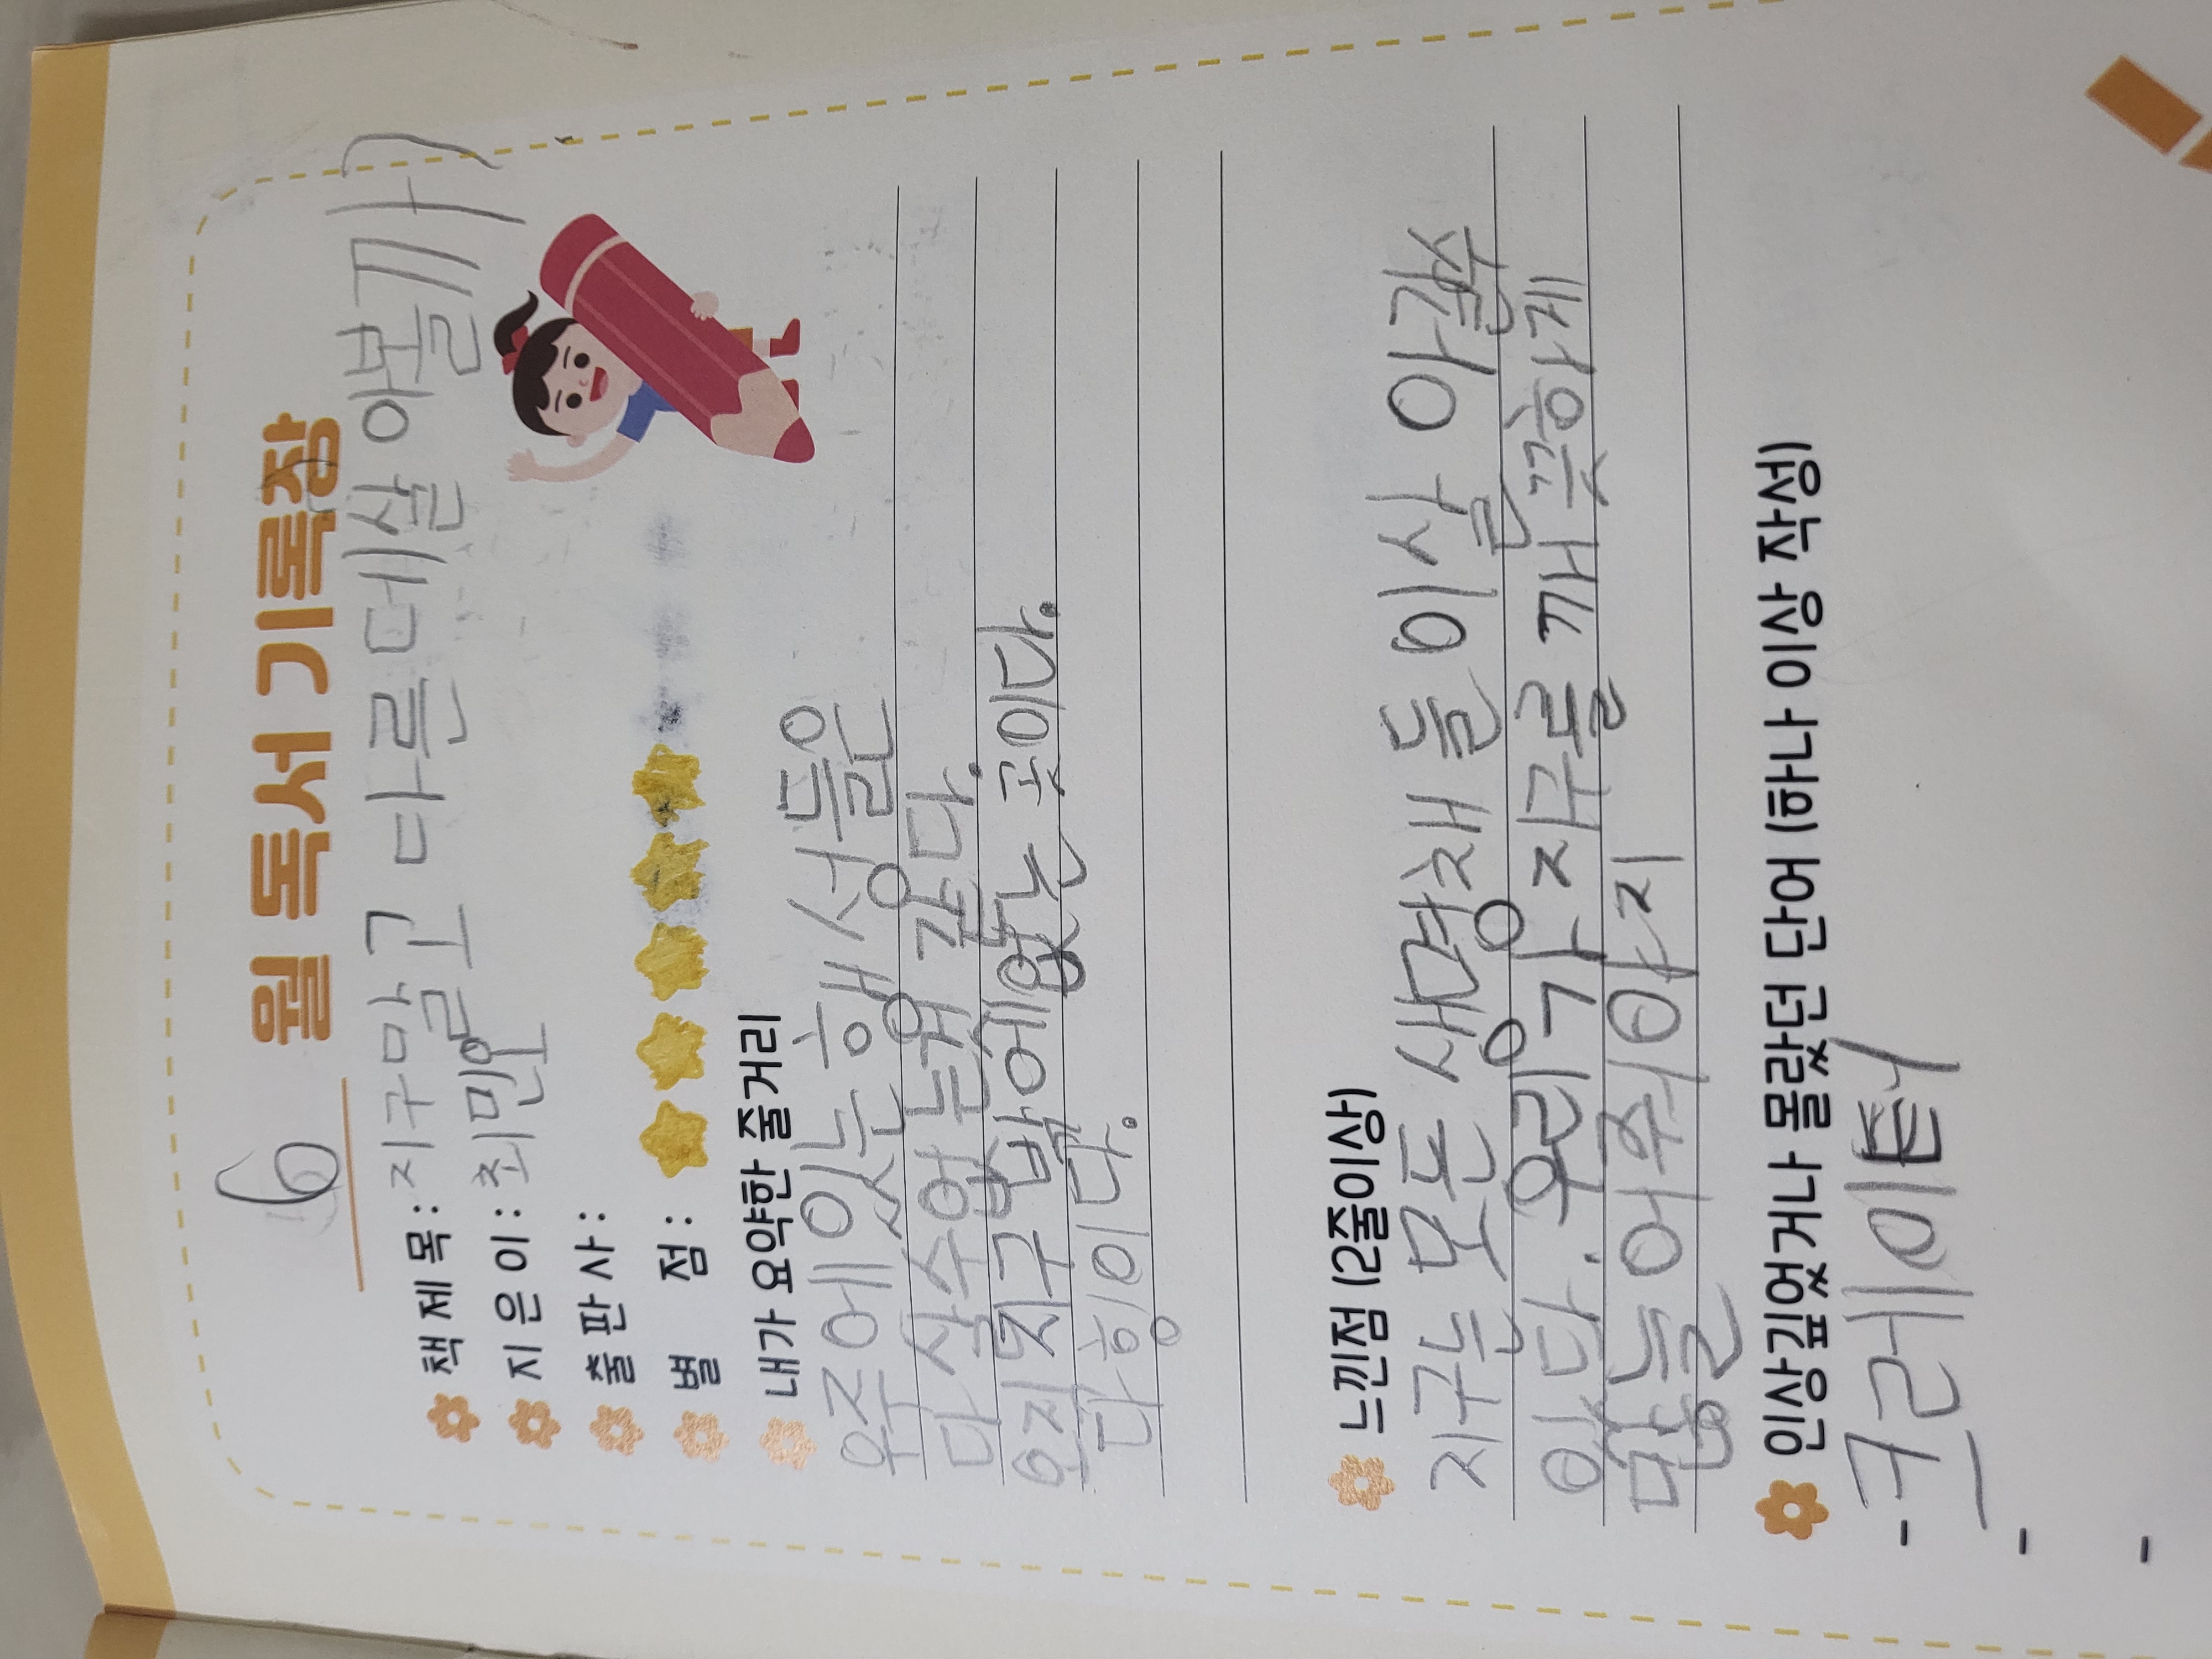 6 월 독서 기록장
책 제 목 : 지구말고 다른데 살아볼까?
지 은 이 : 최민오
출 판 사 :
별 점 :
내가 요약한 줄거리
우주에 있는 행성들은
다 살수 없는것 같다.
오직 지구 밖에 없는 곳이다.
다 헹이다.
느낀점 (2줄이상)
지구는 모든 생명채 들이 살아갈수
있다. 우리가 지구를 깨끗하게
만들어 주워야지
인상깊었거나 몰랐던 단어 (하나 이상 작성)
- 크레이터
-
-